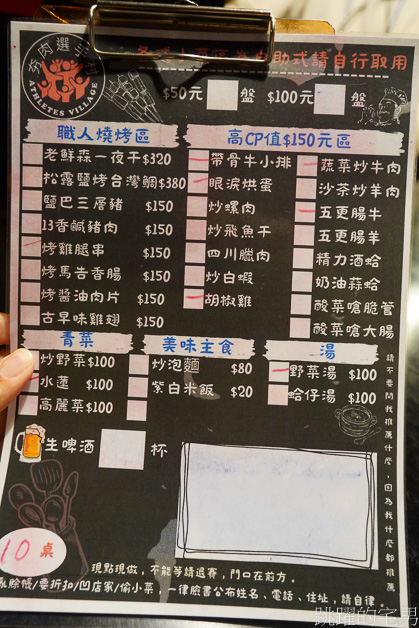 夯肉選手村
ATHLETES VILLAGE
自助式請自行取用
$50元 盤 $100元 盤
職人燒烤區
老鮮森一夜干$320
松露鹽烤台灣鯛$380
鹽巴三層豬 $150
13香鹹豬肉 $150
烤雞腿串 $150
烤馬告香腸 $150
烤醬油肉片 $150
古早味雞翅 $150
高CP值$150元區
帶骨牛小排
眼淚烘蛋
炒螺肉
炒飛魚干
四川臘肉
炒白蝦
胡椒雞
蔬菜炒牛肉
沙茶炒羊肉
五更腸牛
五更腸羊
精力酒蛤
奶油蒜蛤
酸菜嗆脆管
酸菜嗆大腸
青菜
炒野菜$100
水蓮 $100
高麗菜$100
美味主食
炒泡麵 $80
紫白米飯 $20
湯
野菜湯 $100
蛤仔湯 $100
生啤酒 杯
請不要問我推薦什麼，因為我什麼都推薦
10 桌
現點現做，不能等請退賽，門口在前方。
亂賒帳/要折扣/凹店家/偷小菜 一律臉書公布姓名、電話、住址，請自律
跳躍的宅男